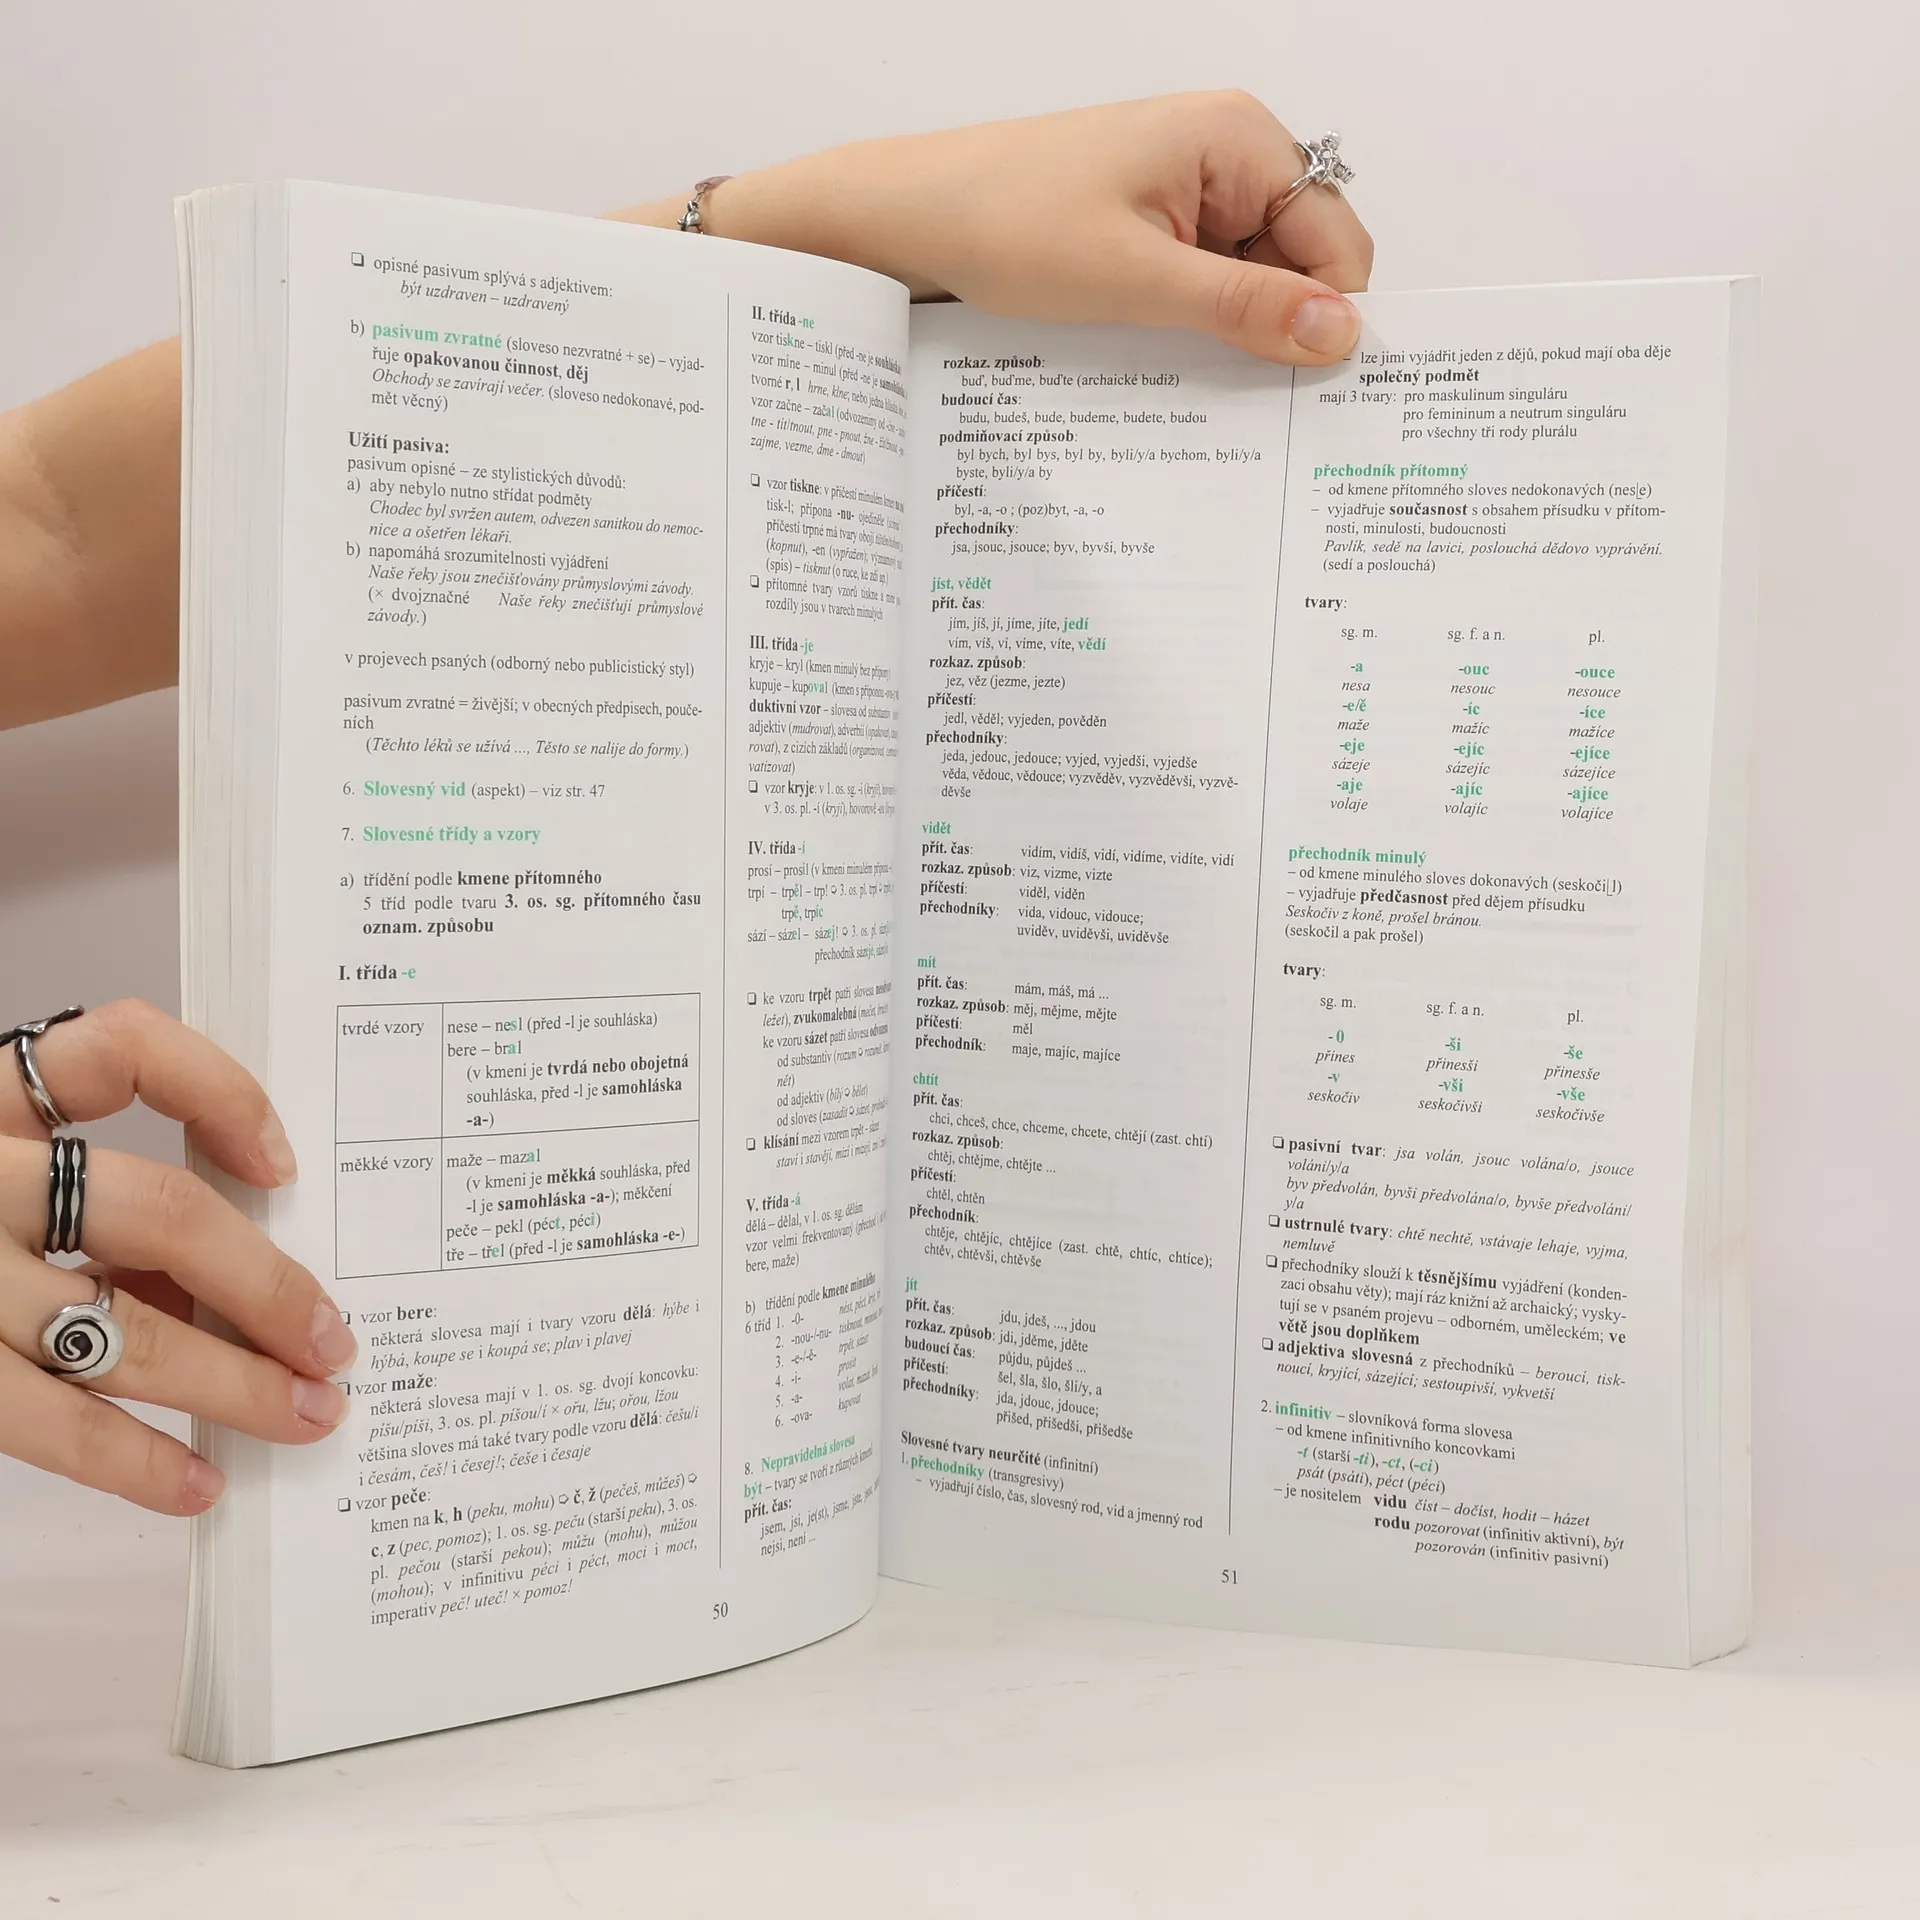 ❏ opisné pasivum splývá s adjektivem:
být uzdraven – uzdravený
b) pasivum zvratné (sloveso nezvratné + se) – vyjad-
řuje opakovanou činnost, děj
Obchody se zavírají večer. (sloveso nedokonavé, pod-
mět věcný)
Užití pasiva:
pasivum opisné – ze stylistických důvodů:
a) aby nebylo nutno střídat podměty
Chodec byl svržen autem, odvezen sanitkou do nemoc-
nice a ošetřen lékaři.
b) napomáhá srozumitelnosti vyjádření
Naše řeky jsou znečišťovány průmyslovými závody.
(× dvojznačné Naše řeky znečišťují průmyslové
závody.)
v projevech psaných (odborný nebo publicistický styl)
pasivum zvratné = živější; v obecných předpisech, pouče-
ních
(Těchto léků se užívá ..., Těsto se nalije do formy.)
6. Slovesný vid (aspekt) – viz str. 47
7. Slovesné třídy a vzory
a) třídění podle kmene přítomného
5 tříd podle tvaru 3. os. sg. přítomného času
oznam. způsobu
I. třída -e
tvrdé vzory
nese – nesl (před -l je souhláska)
bere – bral
(v kmeni je tvrdá nebo obojetná
souhláska, před -l je samohláska
-a-)
měkké vzory
maže – mazal
(v kmeni je měkká souhláska, před
-l je samohláska -a-); měkčení
peče – pekl (péct, péci)
tře – třel (před -l je samohláska -e-)
❏ vzor bere:
některá slovesa mají i tvary vzoru dělá: hýbe i
hýbá, koupe se i koupá se; plav i plavej
❏ vzor maže:
některá slovesa mají v 1. os. sg. dvojí koncovku:
píšu/píši, 3. os. pl. píšou/í × ořu, lžu; ořou, lžou
většina sloves má také tvary podle vzoru dělá: češu/i
i česám, češ! i česej!; češe i česaje
❏ vzor peče:
kmen na k, h (peku, mohu) ➪ č, ž (pečeš, můžeš) ➪
c, z (pec, pomoz); 1. os. sg. peču (starší peku), 3. os.
pl. pečou (starší pekou); můžu (mohu), můžou
(mohou); v infinitivu péci i péct, moci i moct,
imperativ peč! uteč! × pomoz!
II. třída -ne
vzor tiskne – tiskl (před -ne je souhláska
vzor mine – minul (před -ne je
tvorné r, l hrne, klne; nebo jedna
vzor začne – začal (odvozeniny od
tne - tít/tnout, pne - pnout, žne -
zajme, vezme, dme - dmout)
❏ vzor tiskne: v příčestí minulém kmen
tisk-l; přípona -nu- ojediněle
příčestí trpné má tvary obojí
(kopnut), -en (vypřažen);
(spis) – tisknut (o ruce, ke zdi ap.)
❏ přítomné tvary vzorů tiskne a mine
rozdíly jsou v tvarech minulých
III. třída -je
kryje – kryl (kmen minulý bez přípony)
kupuje – kupoval (kmen s příponou
duktivní vzor – slovesa od substantiv
adjektiv (mudrovat), adverbií
rovat), z cizích základů (organizovat,
vatizovat)
❏ vzor kryje: v 1. os. sg. -i (kryji),
v 3. os. pl. -í (kryjí), hovorově
IV. třída -í
prosí – prosil (v kmeni minulém přípona
trpí – trpěl – trp! ➪ 3. os. pl. trpí ➪
trpě, trpíc
sází – sázel – sázej! ➪ 3. os. pl.
přechodník sázeje,
❏ ke vzoru trpět patří slovesa
ležet), zvukomalebná
ke vzoru sázet patří slovesa
od substantiv (rozum ➪
nět)
od adjektiv (bílý ➪ bělet)
od sloves (zasadit ➪ sázet,
❏ kolísání mezi vzorem trpět – sázet
staví i stavějí, mizí i mizejí,
V. třída -á
dělá – dělal, v 1. os. sg. dělám
vzor velmi frekventovaný
bere, maže)
b) třídění podle kmene minulého
6 tříd 1. -0-
2. -nou-/-nu-
3. -e-/-ě- trpět, sázet
4. -i- prosit
5. -a-
6. -ova- kupovat
8. Nepravidelná slovesa
být – tvary se tvoří z různých kmenů
přít. čas:
jsem, jsi, je(st), jsme, jste,
nejsi, není ...
50
rozkaz. způsob:
buď, buďme, buďte (archaické budiž)
budoucí čas:
budu, budeš, bude, budeme, budete, budou
podmiňovací způsob:
byl bych, byl bys, byl by, byli/y/a bychom, byli/y/a
byste, byli/y/a by
příčestí:
byl, -a, -o ; (poz)byt, -a, -o
přechodníky:
jsa, jsouc, jsouce; byv, byvši, byvše
jíst, vědět
přít. čas:
jím, jíš, jí, jíme, jíte, jedí
vím, víš, ví, víme, víte, vědí
rozkaz. způsob:
jez, věz (jezme, jezte)
příčestí:
jedl, věděl; vyjeden, pověděn
přechodníky:
jeda, jedouc, jedouce; vyjed, vyjedši, vyjedše
věda, vědouc, vědouce; vyzvěděv, vyzvěděvši, vyzvě-
děvše
vidět
přít. čas: vidím, vidíš, vidí, vidíme, vidíte, vidí
rozkaz. způsob: viz, vizme, vizte
příčestí: viděl, viděn
přechodníky: vida, vidouc, vidouce;
uviděv, uviděvši, uviděvše
mít
přít. čas: mám, máš, má ...
rozkaz. způsob: měj, mějme, mějte
příčestí: měl
přechodník: maje, majíc, majíce
chtít
přít. čas:
chci, chceš, chce, chceme, chcete, chtějí (zast. chtí)
rozkaz. způsob:
chtěj, chtějme, chtějte ...
příčestí:
chtěl, chtěn
přechodník:
chtěje, chtějíc, chtějíce (zast. chtě, chtíc, chtíce);
chtěv, chtěvši, chtěvše
jít
přít. čas: jdu, jdeš, ..., jdou
rozkaz. způsob: jdi, jděme, jděte
budoucí čas: půjdu, půjdeš ...
příčestí: šel, šla, šlo, šli/y, a
přechodníky: jda, jdouc, jdouce;
přišed, přišedši, přišedše
Slovesné tvary neurčité (infinitní)
1. přechodníky (transgresivy)
– vyjadřují číslo, čas, slovesný rod, vid a jmenný rod
– lze jimi vyjádřit jeden z dějů, pokud mají oba děje
společný podmět
mají 3 tvary: pro maskulinum singuláru
pro femininum a neutrum singuláru
pro všechny tři rody plurálu
přechodník přítomný
– od kmene přítomného sloves nedokonavých (nes|e)
– vyjadřuje současnost s obsahem přísudku v přítom-
nosti, minulosti, budoucnosti
Pavlík, sedě na lavici, poslouchá dědovo vyprávění.
(sedí a poslouchá)
tvary:
sg. m. sg. f. a n. pl.
-a -ouc -ouce
nesa nesouc nesouce
-e/ě -íc -íce
maže mažíc mažíce
-eje -ejíc -ejíce
sázeje sázejíc sázejíce
-aje -ajíc -ajíce
volaje volajíc volajíce
přechodník minulý
– od kmene minulého sloves dokonavých (seskoči|l)
– vyjadřuje předčasnost před dějem přísudku
Seskočiv z koně, prošel bránou.
(seskočil a pak prošel)
tvary:
sg. m. sg. f. a n. pl.
- 0 -ši -še
přines přinesši přinesše
-v -vši -vše
seskočiv seskočivši seskočivše
❏ pasivní tvar: jsa volán, jsouc volána/o, jsouce
voláni/y/a
byv předvolán, byvši předvolána/o, byvše předvoláni/
y/a
❏ ustrnulé tvary: chtě nechtě, vstávaje lehaje, vyjma,
nemluvě
❏ přechodníky slouží k těsnějšímu vyjádření (konden-
zaci obsahu věty); mají ráz knižní až archaický; vysky-
tují se v psaném projevu – odborném, uměleckém; ve
větě jsou doplňkem
❏ adjektiva slovesná z přechodníků – beroucí, tisk-
noucí, kryjící, sázející; sestoupivší, vykvetší
2. infinitiv – slovníková forma slovesa
– od kmene infinitivního koncovkami
-t (starší -ti), -ct, (-ci)
psát (psáti), péct (péci)
– je nositelem vidu číst – dočíst, hodit – házet
rodu pozorovat (infinitiv aktivní), být
pozorován (infinitiv pasivní)
51